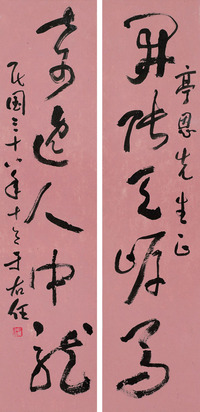 亭恩先生正
開張天岸馬
奇逸人中龍
民國三十六年十于右任